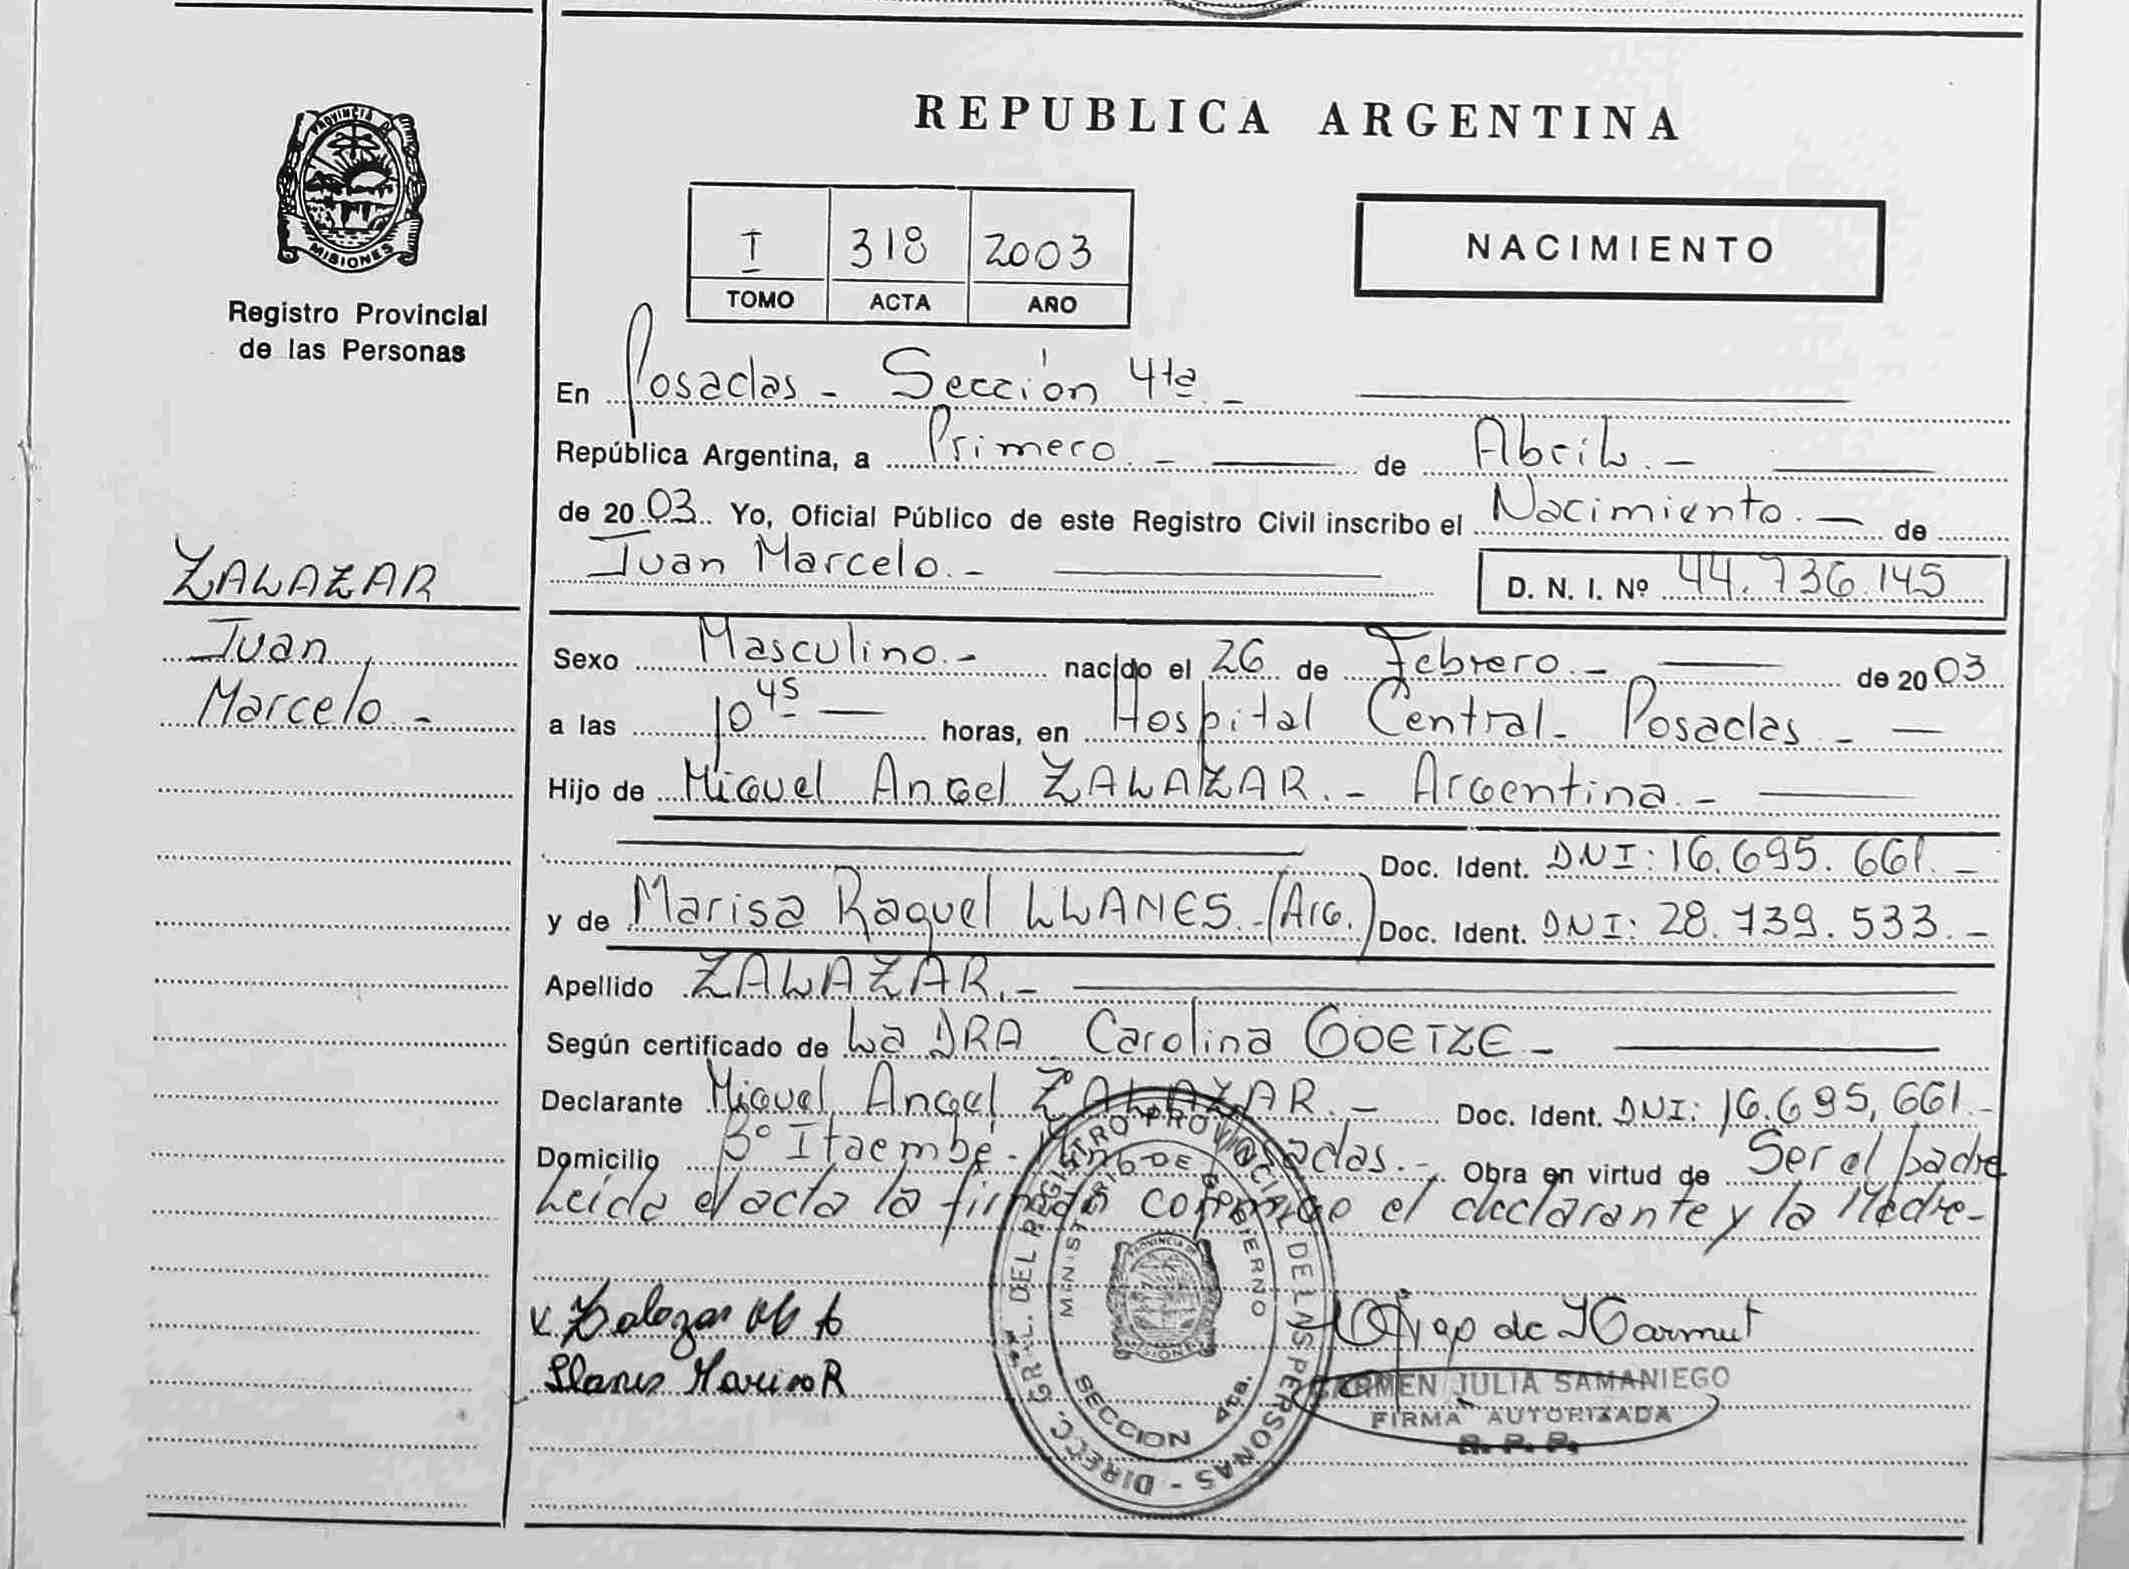 REPUBLICA ARGENTINA
PROVINCIA DE
MISIONES
Registro Provincial
de las Personas
I 318 2003
TOMO ACTA AÑO
NACIMIENTO
En Posadas - Sección 4ta. -
República Argentina, a Primero. - de Abril. -
de 2003. Yo, Oficial Público de este Registro Civil inscribo el Nacimiento. - de
Juan Marcelo. - D. N. I. Nº 44.736.145
ZALAZAR
Juan
Marcelo. -
Sexo Masculino. - nacido el 26 de Febrero. - de 2003
a las 10 45 - horas, en Hospital Central - Posadas - -
Hijo de Miguel Angel ZALAZAR. - Argentina. -
Doc. Ident. DNI: 16.695.661. -
y de Marisa Raquel LLANES. - (Arg.) Doc. Ident. DNI: 28.739.533. -
Apellido ZALAZAR. -
Según certificado de La DRA Carolina GOETZE -
Declarante Miguel Angel ZALAZAR. - Doc. Ident. DNI: 16.695,661. -
Domicilio Bº Itaembé - Posadas. - Obra en virtud de Ser el padre
Leida el acta la firman conmigo el declarante y la Madre -
Zalazar M A
Llanes Marisa R
de Karmut
CARMEN JULIA SAMANIEGO
FIRMA AUTORIZADA
R. P. P.
DIRECC. GRAL. DEL REGISTRO PROVINCIAL DE LAS PERSONAS -
MINISTERIO DE GOBIERNO
PROVINCIA DE
MISIONES
SECCION 4ta.